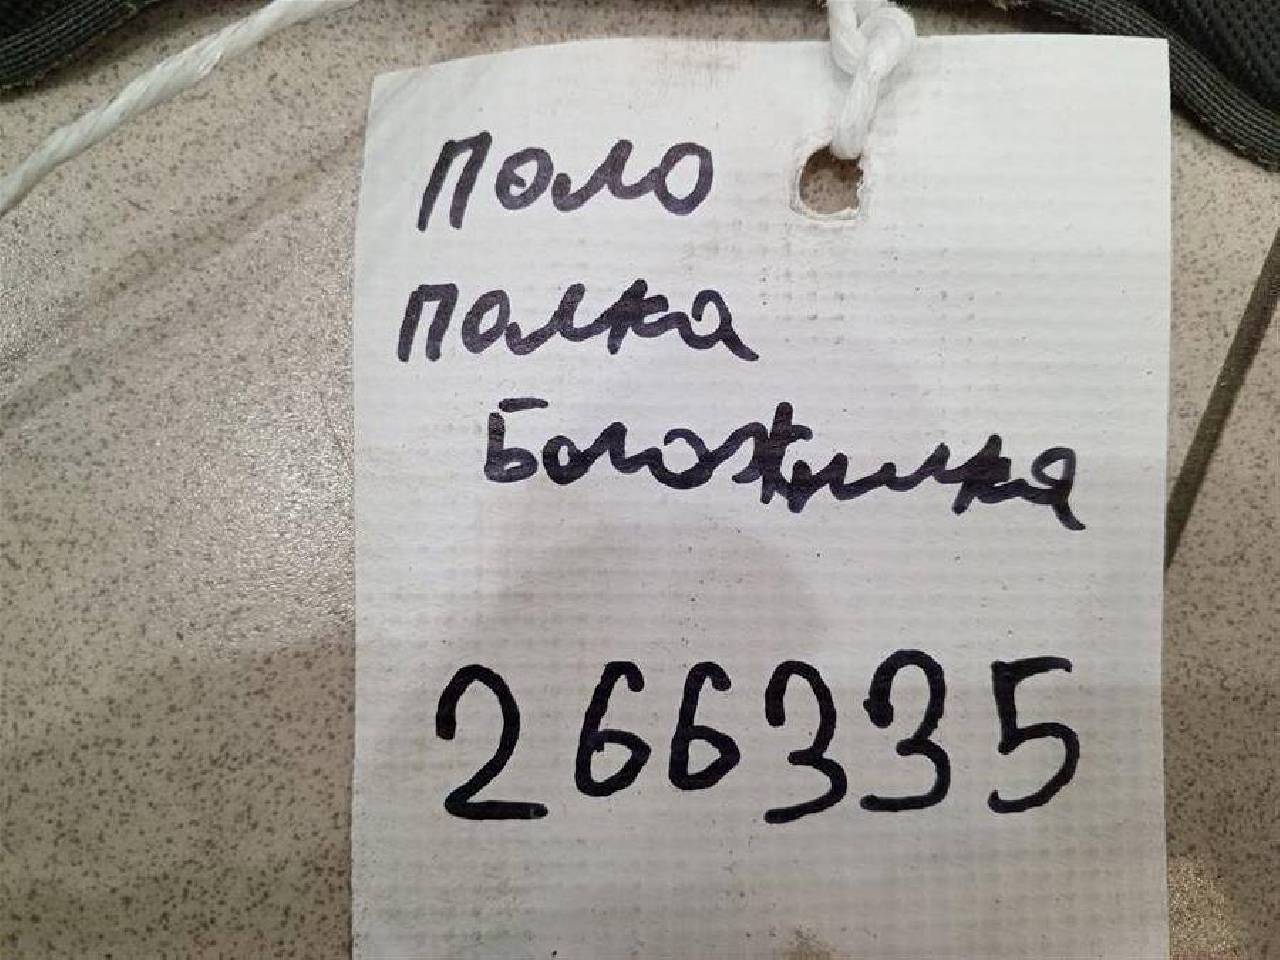 Поло
Полка
Богожника
266335